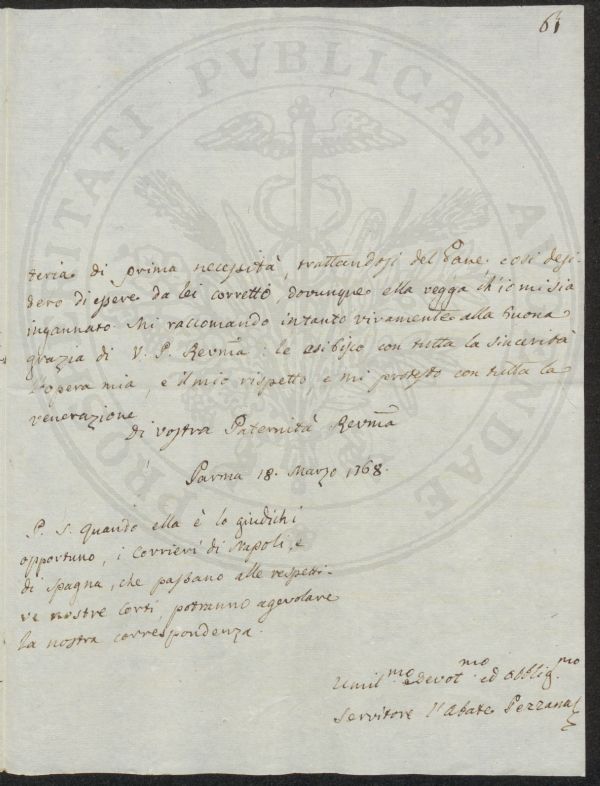 63
teria di prima necessità, trattandosi del Pane così desi-
dero di essere da lei corretto, dovunque ella vegga ch'io mi sia
ingannato. Mi raccomando intanto vivamente alla buona
grazia di V. P. Revma: le esibisco con tutta la sincerità
l'opera mia, e il mio rispetto, e mi protesto con tutta la
venerazione
di vostra Paternità Revma
Parma 18. Marzo 1768.
P. S. quando ella è lo giudichi
opportuno, i corrieri di Napoli, e
di Spagna, che passano alle rispetti-
ve nostre Corti, potranno agevolare
la nostra correspondenza.
Umilmo devotmo ed obbligmo
Servitore l'Abate Pezzana
PROSPERITATI PVBLICAE AVGENDAE